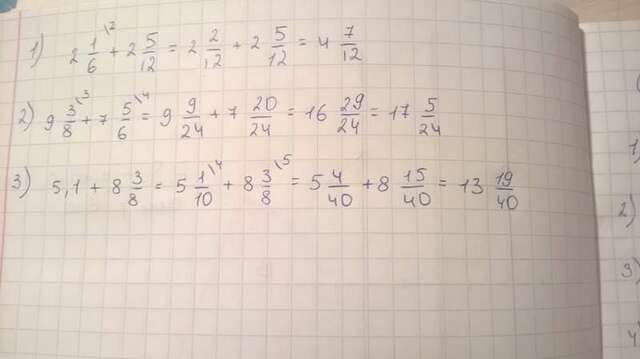 1) 2 1/6 \2 + 2 5/12 = 2 2/12 + 2 5/12 = 4 7/12
2) 9 3/8 \3 + 7 5/6 \4 = 9 9/24 + 7 20/24 = 16 29/24 = 17 5/24
3) 5,1 + 8 3/8 = 5 1/10 \4 + 8 3/8 \5 = 5 4/40 + 8 15/40 = 13 19/40
1)
2)
3)
4)